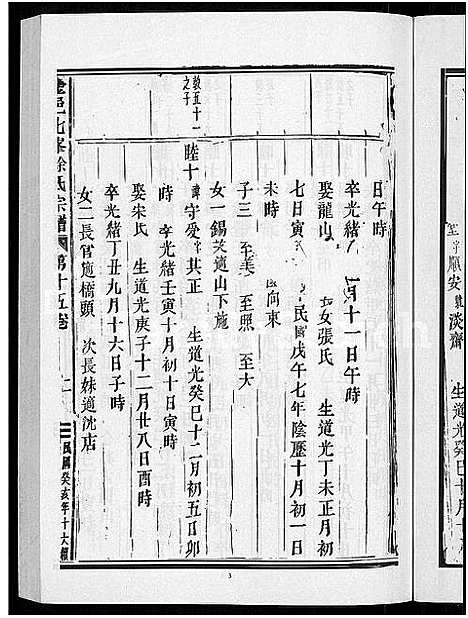 至字順安號淡齋 生道光癸巳十月十八
日午時
卒光緒 十一日午時
娶龍山 女張氏 生道光丁未正月初
七日寅 民國戊午七年陰歷十月初一日
未時 向東
子三 至美 至照 至大
女一錫英適山下施
敦五十一之子
睦十 諱守受字其正 生道光癸巳十二月初五日卯
時 卒光緒壬寅十月初十日寅時
娶宋氏 生道光庚子十二月廿八日酉時
卒光緒丁丑九月十六日子時
女二長官適橋頭 次長妹適沈店
北峯徐氏宗譜 第十五卷 二 民國癸亥年十六
3